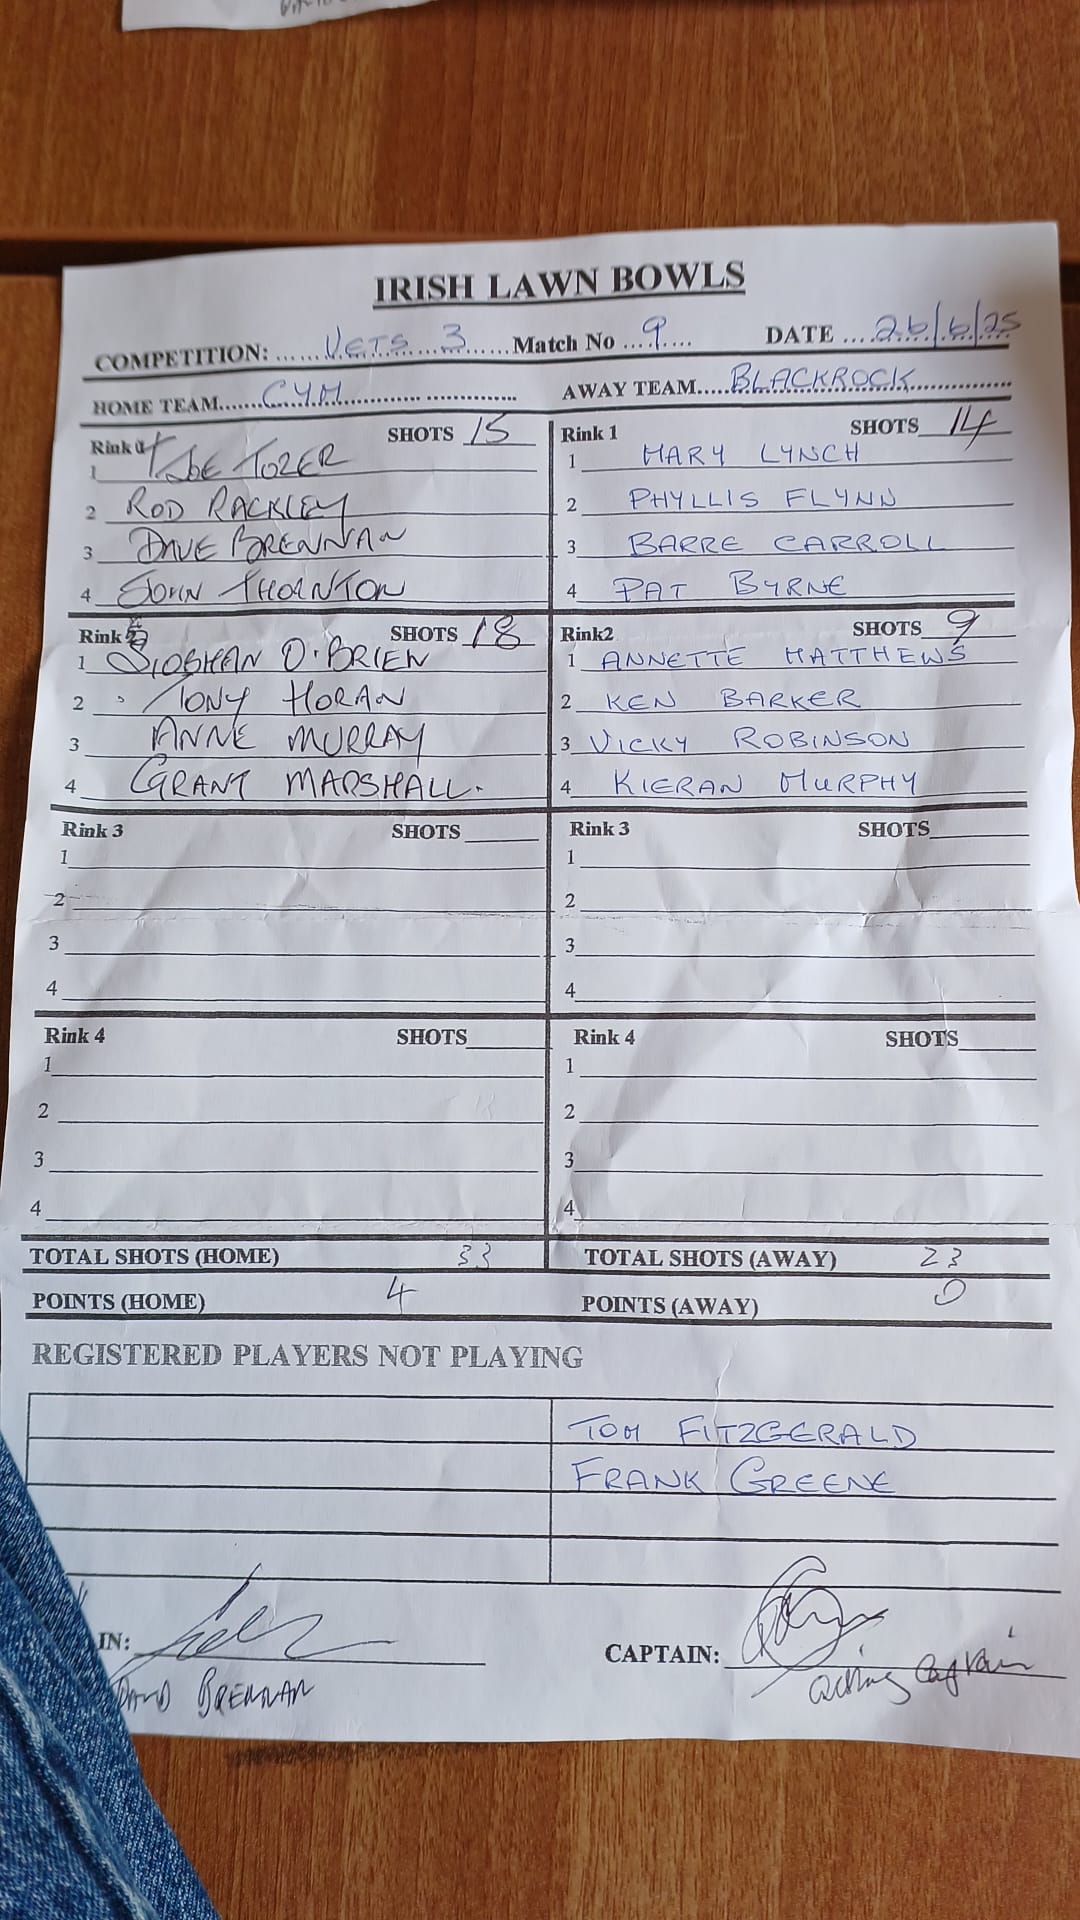 IRISH LAWN BOWLS
COMPETITION: ......VETS 3......Match No ....9.... DATE ....26/6/25
HOME TEAM......CYM.................. ................ AWAY TEAM.....BLACKROCK..................
Rink SHOTS 15
1 JOE TOZER
2 ROD RACKLEY
3 DAVE BRENNAN
4 JOHN THORNTON
Rink 1 SHOTS 14
1 MARY LYNCH
2 PHYLLIS FLYNN
3 BARRE CARROLL
4 PAT BYRNE
Rink SHOTS 18
1 SIOBHAN O'BRIEN
2 TONY HORAN
3 ANNE MURRAY
4 GRANT MARSHALL.
Rink2 SHOTS 9
1 ANNETTE MATTHEWS
2 KEN BARKER
3 VICKY ROBINSON
4 KIERAN MURPHY
Rink 3 SHOTS
1
2
3
4
Rink 3 SHOTS
1
2
3
4
Rink 4 SHOTS
1
2
3
4
Rink 4 SHOTS
1
2
3
4
TOTAL SHOTS (HOME) 33 TOTAL SHOTS (AWAY) 23
POINTS (HOME) 4 POINTS (AWAY) 0
REGISTERED PLAYERS NOT PLAYING
TOM FITZGERALD
FRANK GREENE
IN: CAPTAIN:
BRENNAN acting Captain